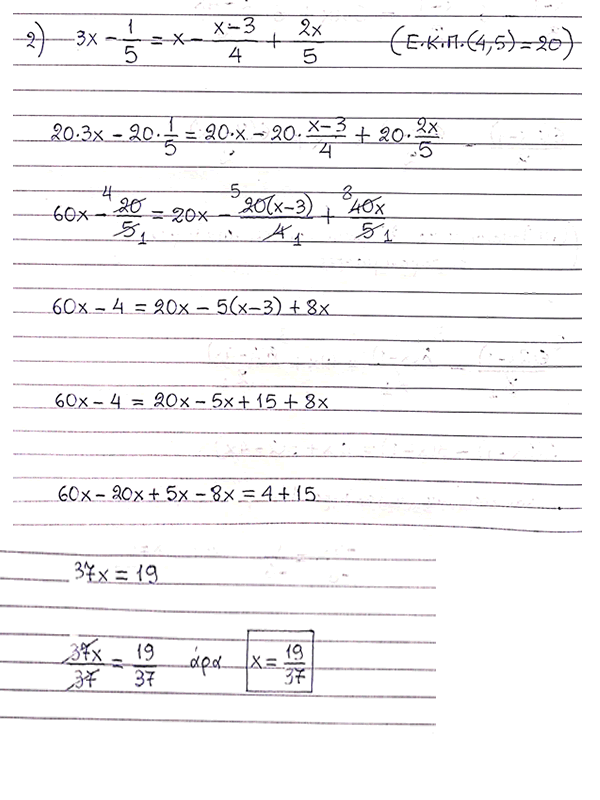 2) 3x - 1/5 = x - (x-3)/4 + 2x/5 (Ε.Κ.Π.(4,5) = 20)
20·3x - 20·1/5 = 20·x - 20·(x-3)/4 + 20·2x/5
60x - 4 20/5 1 = 20x - 5 20(x-3)/4 1 + 8 40x/5 1
60x - 4 = 20x - 5(x-3) + 8x
60x - 4 = 20x - 5x + 15 + 8x
60x - 20x + 5x - 8x = 4 + 15
37x = 19
37x/37 = 19/37 άρα x = 19/37